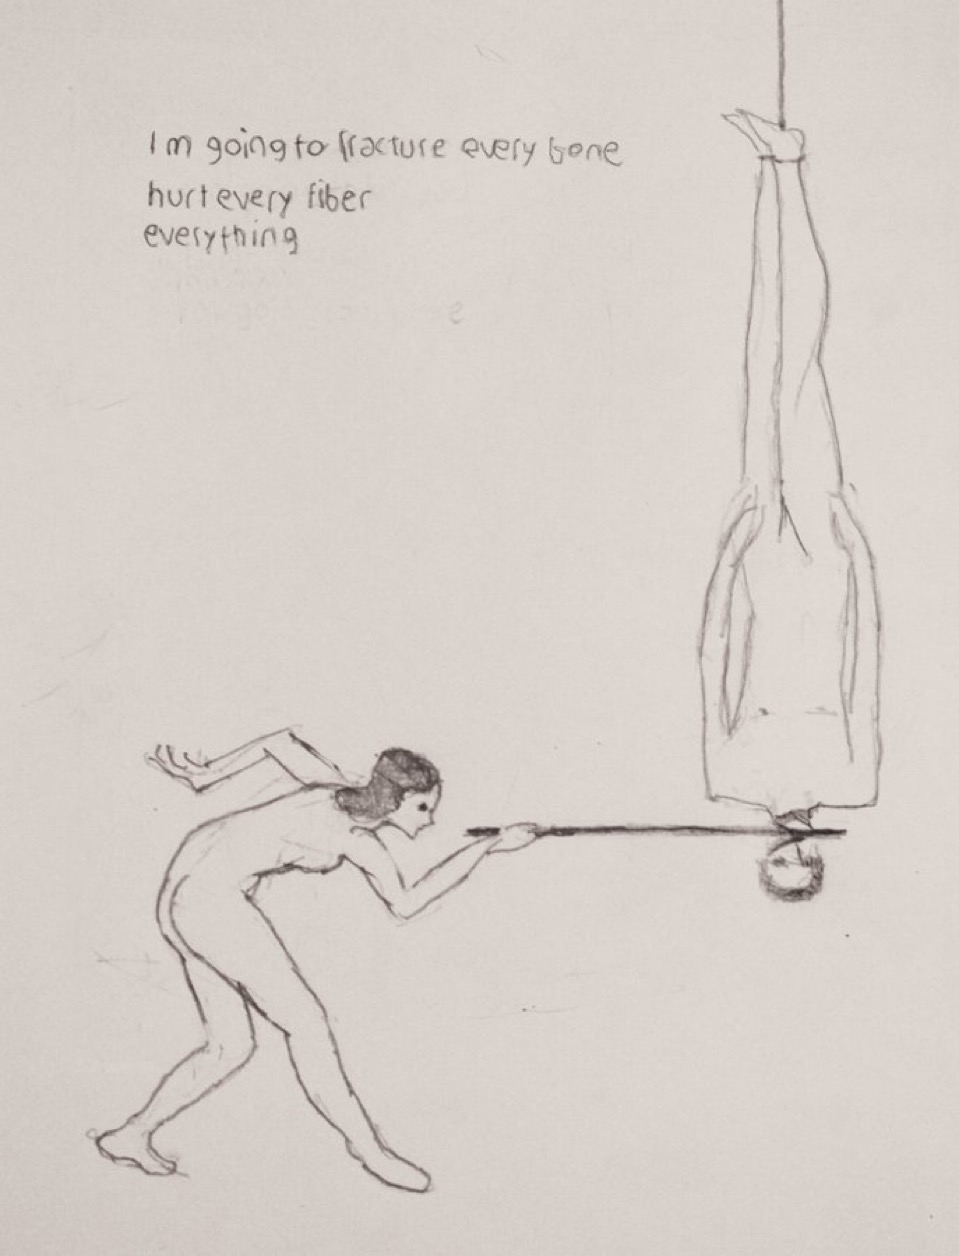 Im going to fracture every bone
hurt every fiber
everything